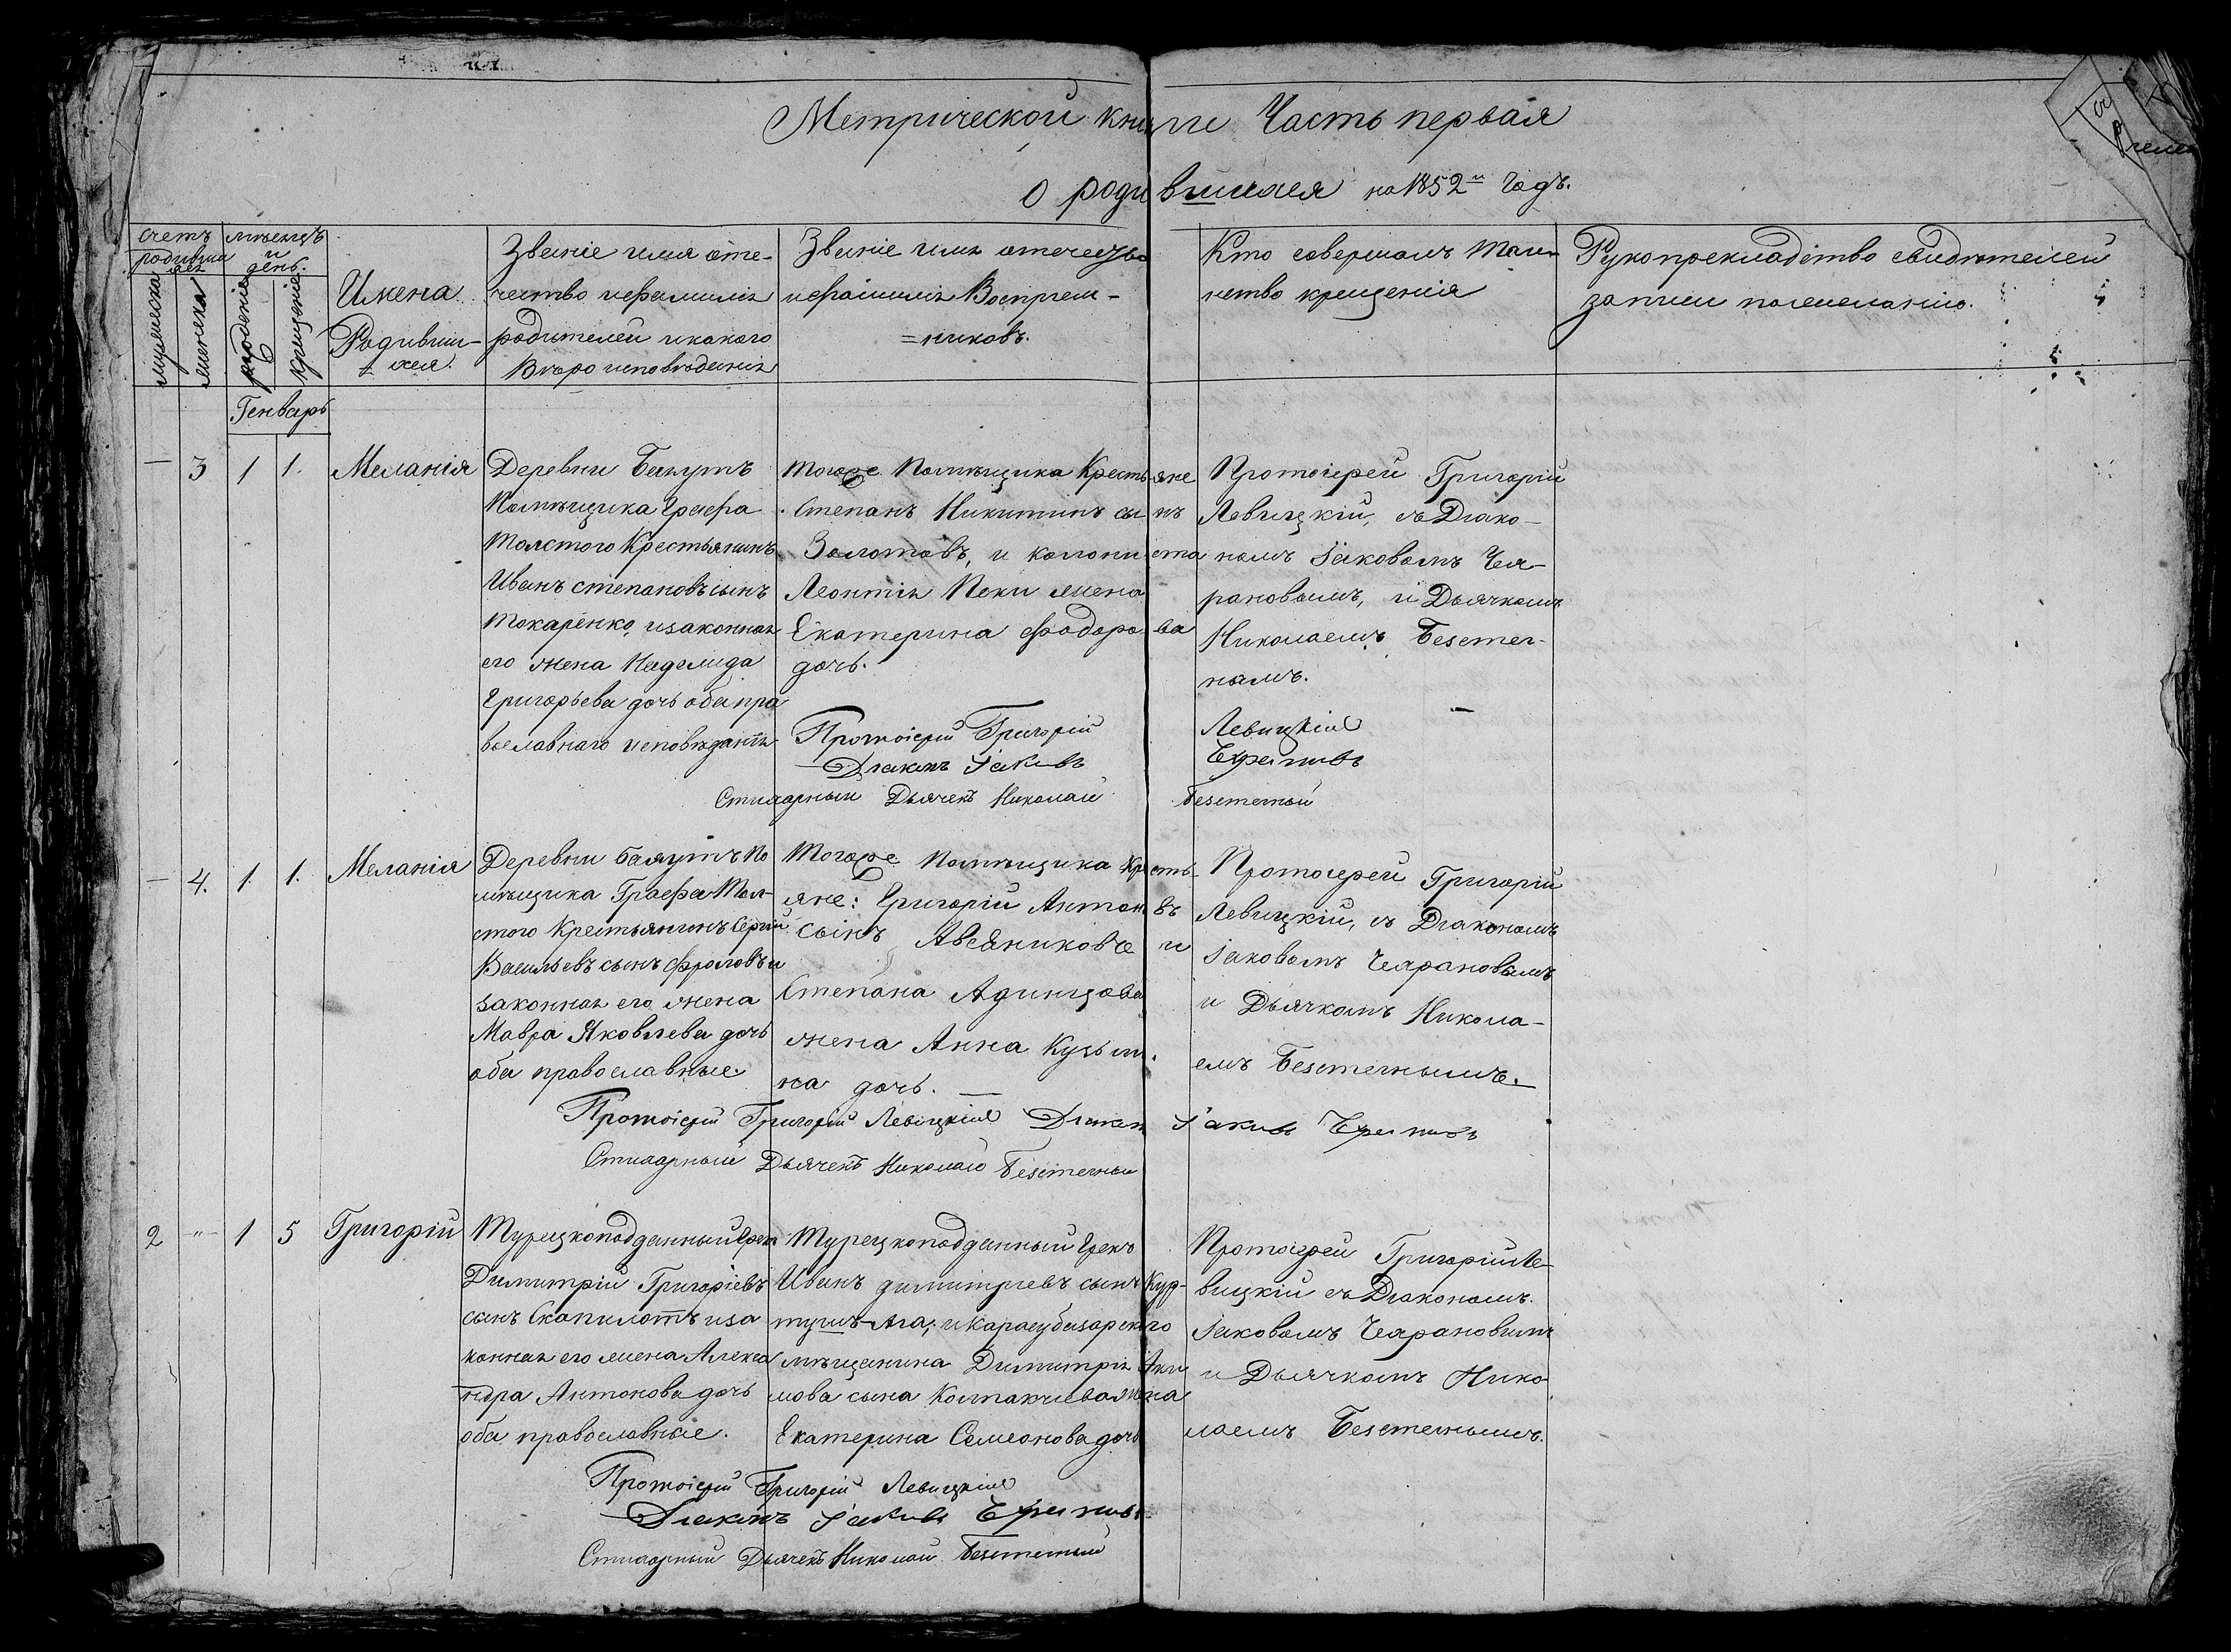 Метрической книги Часть первая
о родившихся на 1852й Годъ.
счетъ родившихся
мужеска
женска
мѣсяцъ и день.
рожденіе
крещеніе
Имена
Родивши-
хся.
Званіе имя оте-
чество и фамилія
родителей и какого
Вѣроисповѣданія
Званіе имя отечество
и фамилія Воспріем-
=никовъ.
Кто совершалъ Таин-
ство крещенія
Рукоприкладство свидѣтелей
записи по желанію.
Генварь
— 3 1 1. Меланія
Деревни
Помѣщика Графа
Толстого Крестьянинъ
Иванъ Степановъ сынъ
Токаренко, и законная
его жена
Григорьева дочь оба пра
вославнаго исповѣданія
Тогоже Помѣщика Крестьяне
Степанъ Никитинъ сынъ
Золотовъ, и колониста
Леонтія Пеки жена
Екатерина Федорова
дочь.
Протоіерей Григорій
Левицкій, съ Діако-
номъ Іаковомъ
и Дьячкомъ
Николаемъ Безстеч-
нымъ.
Протоіерей Григорій Левицкій
Діаконъ Іаковъ
Стихарный Дьячекъ Николай
— 4. 1. 1. Меланія
Деревни По
мѣщика Графа Тол-
стого Крестьянинъ Сергій
Васильевъ сынъ Фроловъ и
законная его жена
Мавра Яковлева дочь
оба православные.
Тогоже Помѣщика Кресть-
яне: Григорій Антоновъ
сынъ и
Степана Адинцова
жена Анна Кузьми-
на дочь.
Протоіерей Григорій
Левицкій, съ Діакономъ
Іаковомъ
и Дьячкомъ Никола-
емъ
Протоіерей Григорій Левицкій Діаконъ Іаковъ
Стихарный Дьячекъ Николай
2 -"- 1 5 Григорій
Турецкоподданный Грекъ
Димитрій Григоріевъ
сынъ и за
конная его жена Алекса
ндра Антонова дочь
оба православные.
Турецкоподданный Грекъ
Иванъ Димитріевъ сынъ
и Карасубазарскаго
мѣщанина Димитрія
сына жена
Екатерина Семеонова дочь
Протоіерей Григорій Ле-
вицкій съ Діакономъ
Іаковомъ
и Дьячкомъ Нико-
лаемъ
Протоіерей Григорій Левицкій
Діаконъ Іаковъ
Стихарный Дьячекъ Николай